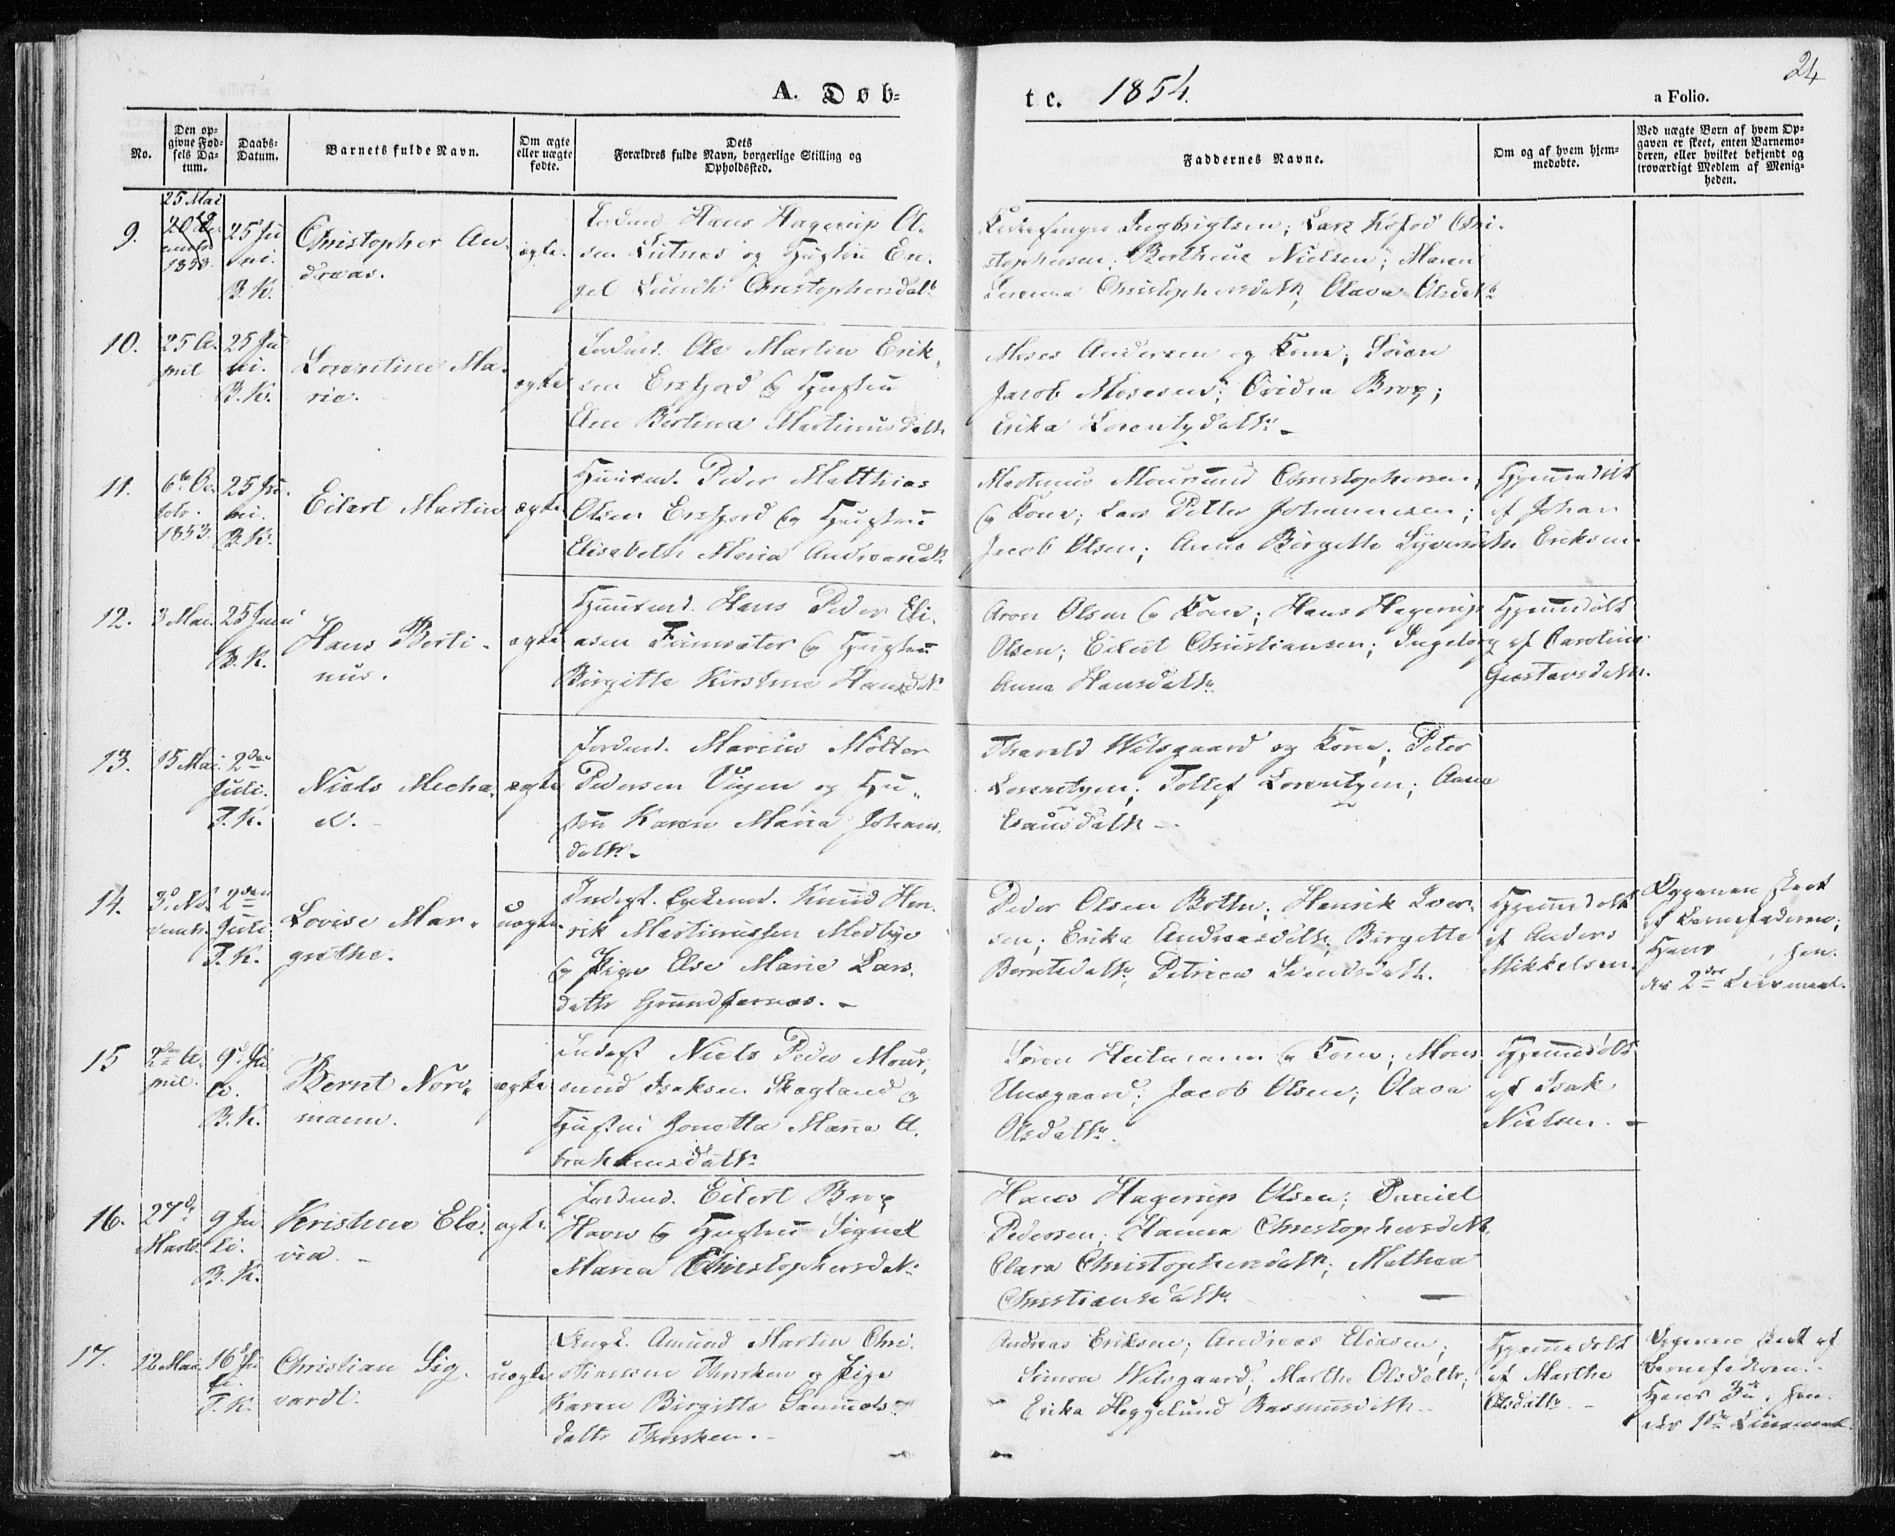 24
A. Døb-
te. 1854.
a Folio.
No.
Den op-
givne Fød-
sels Da-
tum.
Daabs-
Datum.
Barnets fulde Navn.
Om ægte
eller uægte
fødte.
Dets
Forældres fulde Navn, borgerlige Stilling og
Opholdssted.
Faddernes Navne.
Om og af hvem hjem-
medøbte.
Ved uægte Børn af hvem Op-
gaven er skeet, enten Barnemo-
deren, eller hvilket bekjendt og
troværdigt Medlem af Menig-
heden.
9.
25 Mai
1853.
25 Ju
ni.
B. K.
Christopher An-
dreas.
ægte.
Hans Hagerup Ol-
sen Lutnes og Hustru En-
gel Christophersdatr
Lars Kofod Chri-
stophersen; Bertheus Nielsen; Maren
Christophersdatr, Olava Olsdatr
10.
25 A-
pril
25 Ju
ni.
B. K.
Lorentine Ma-
rie.
ægte
Jordmd. Ole Martin Erik-
sen Ersfjord og Hustru
Ane Bertina Martinusdatr
Moses Andersen og Kone; Sören
Jacob Mosesen; Ovidia Brox;
Erika Lorentzdatr.
11.
6te Oc-
tobr.
1853.
25 Ju-
ni.
B. K.
Eilert Martin
ægte
Huusmd. Peder Matthias
Olsen Ersfjord og Hustru
Elisabeth Maria Andreasdatr
Martinus Moursund Christophersen
og Kone; Lars Petter Johannesen;
Jacob Olsen; Anne Birgitte Syversdatr
Hjemmedøbt
af Johan
Eriksen.
12.
3 Mai.
25 Juni
B. K.
Hans Berti-
nus.
ægte
Huusmd. Hans Peder Eli-
asen Finnsæter og Hustru
Birgitte Kirstine Hansdatr
Aron Olsen og Kone; Hans Hagerup
Olsen; Eilert Christiansen; Ingeborg
Anna Hansdatr.
Hjemmedøbt
af Caroline
Gustavsdatr.
13.
15 Mai.
2den
Juli.
T. K.
Niels Mecha-
el.
ægte
Jordmd. Marcus Møller
Pedersen Vigen og Hu-
stru Karen Maria Johans-
datr.
Tharald Wilsgaard og Kone; Peter
Lorentzen; Tollef Lorentzen; Anna
Esausdatr.
14.
3d No-
vembr.
2den
Juli
T. K.
Lovise Mar-
grethe.
uægte
Inderst. Knud Hen-
rik Martinussen Medbye
og Pige Else Marie Lars-
datr Grundfarnæs.
Peder Olsen Botten; Henrik Iver-
sen; Erika Andreasdatr, Birgitte
Berntsdatr, Petrica Svendsdatr.
Hjemmedøbt
af Anders
Mikkelsen.
Opgaven skeet
af Barnefaderen;
Hans , hen-
des 2det Leiermaal.
15
2den A-
pril.
9d Ju
li.
B. K.
Bernt Nor-
mann.
ægte
Inderst Niels Peder Mour-
sund Isaksen Skogland og
Hustru Jonetta Maria A-
brahamsdatr.
Sören Heitmann og Kone; Mons
Unsgaard; Jacob Olsen; Olava
Olsdatr.
Hjemmedøbt
af Isak
Nielsen.
16.
27d
Marts.
9 Ju
li.
B. K.
Kristine Ela-
via.
ægte
Jordmd. Eilert Brox
Havn og Hustru Signel
Maria Christophersdatr.
Hans Hagerup Olsen; Daniel
Pedersen; Hanna Christophersdatr.
Clara Christophersdatr; Mathea
Christiansdatr.
17.
12 Mai.
16d Ju
li.
T. K.
Christian Sig-
vardt.
uægte
Ungk. Amund Martin Chri-
stiansen Thorsken og Pige
Karen Birgitte Samuels-
datr Thorsken.
Andreas Eriksen; Andreas Eliasen;
Simon Wilsgaard; Marthe Olsdatr;
Erika Heggelund Rasmusdatr.
Hjemmedøbt
af Marthe
Olsdatr.
Opgaven skeet af
Barnefaderen.
Hans 1ste, hen-
des 1ste Leiermaal.